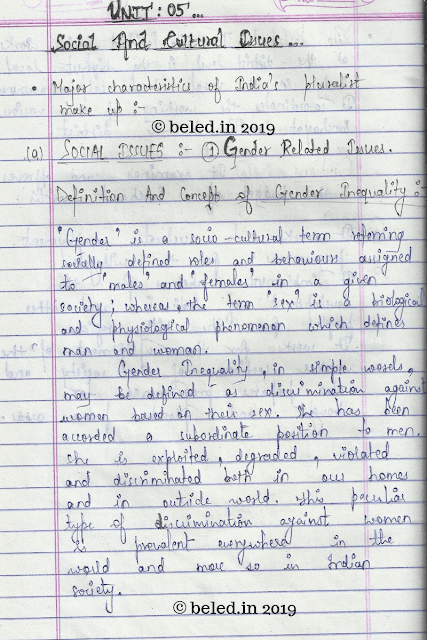 UNIT : 05 ...
Social And Cultural Issues ...
• Major characteristics of India's pluralist
make up :-
© beled.in 2019
(a) SOCIAL ISSUES :- ① Gender Related Issues.
Definition And Concept of Gender Inequality :-
"Gender" is a socio-cultural term referring
socially defined roles and behaviours assigned
to "males" and "females" in a given
society; whereas, the term "sex" is a biological
and physiological phenomenon which defines
man and woman.
Gender Inequality, in simple words,
may be defined as discrimination against
women based on their sex. She has been
accorded a subordinate position to men.
She is exploited, degraded, violated
and discriminated both in our homes
and in outside world. This peculiar
type of discrimination against women
is prevalent everywhere in the
world and more so in Indian
society.
© beled.in 2019